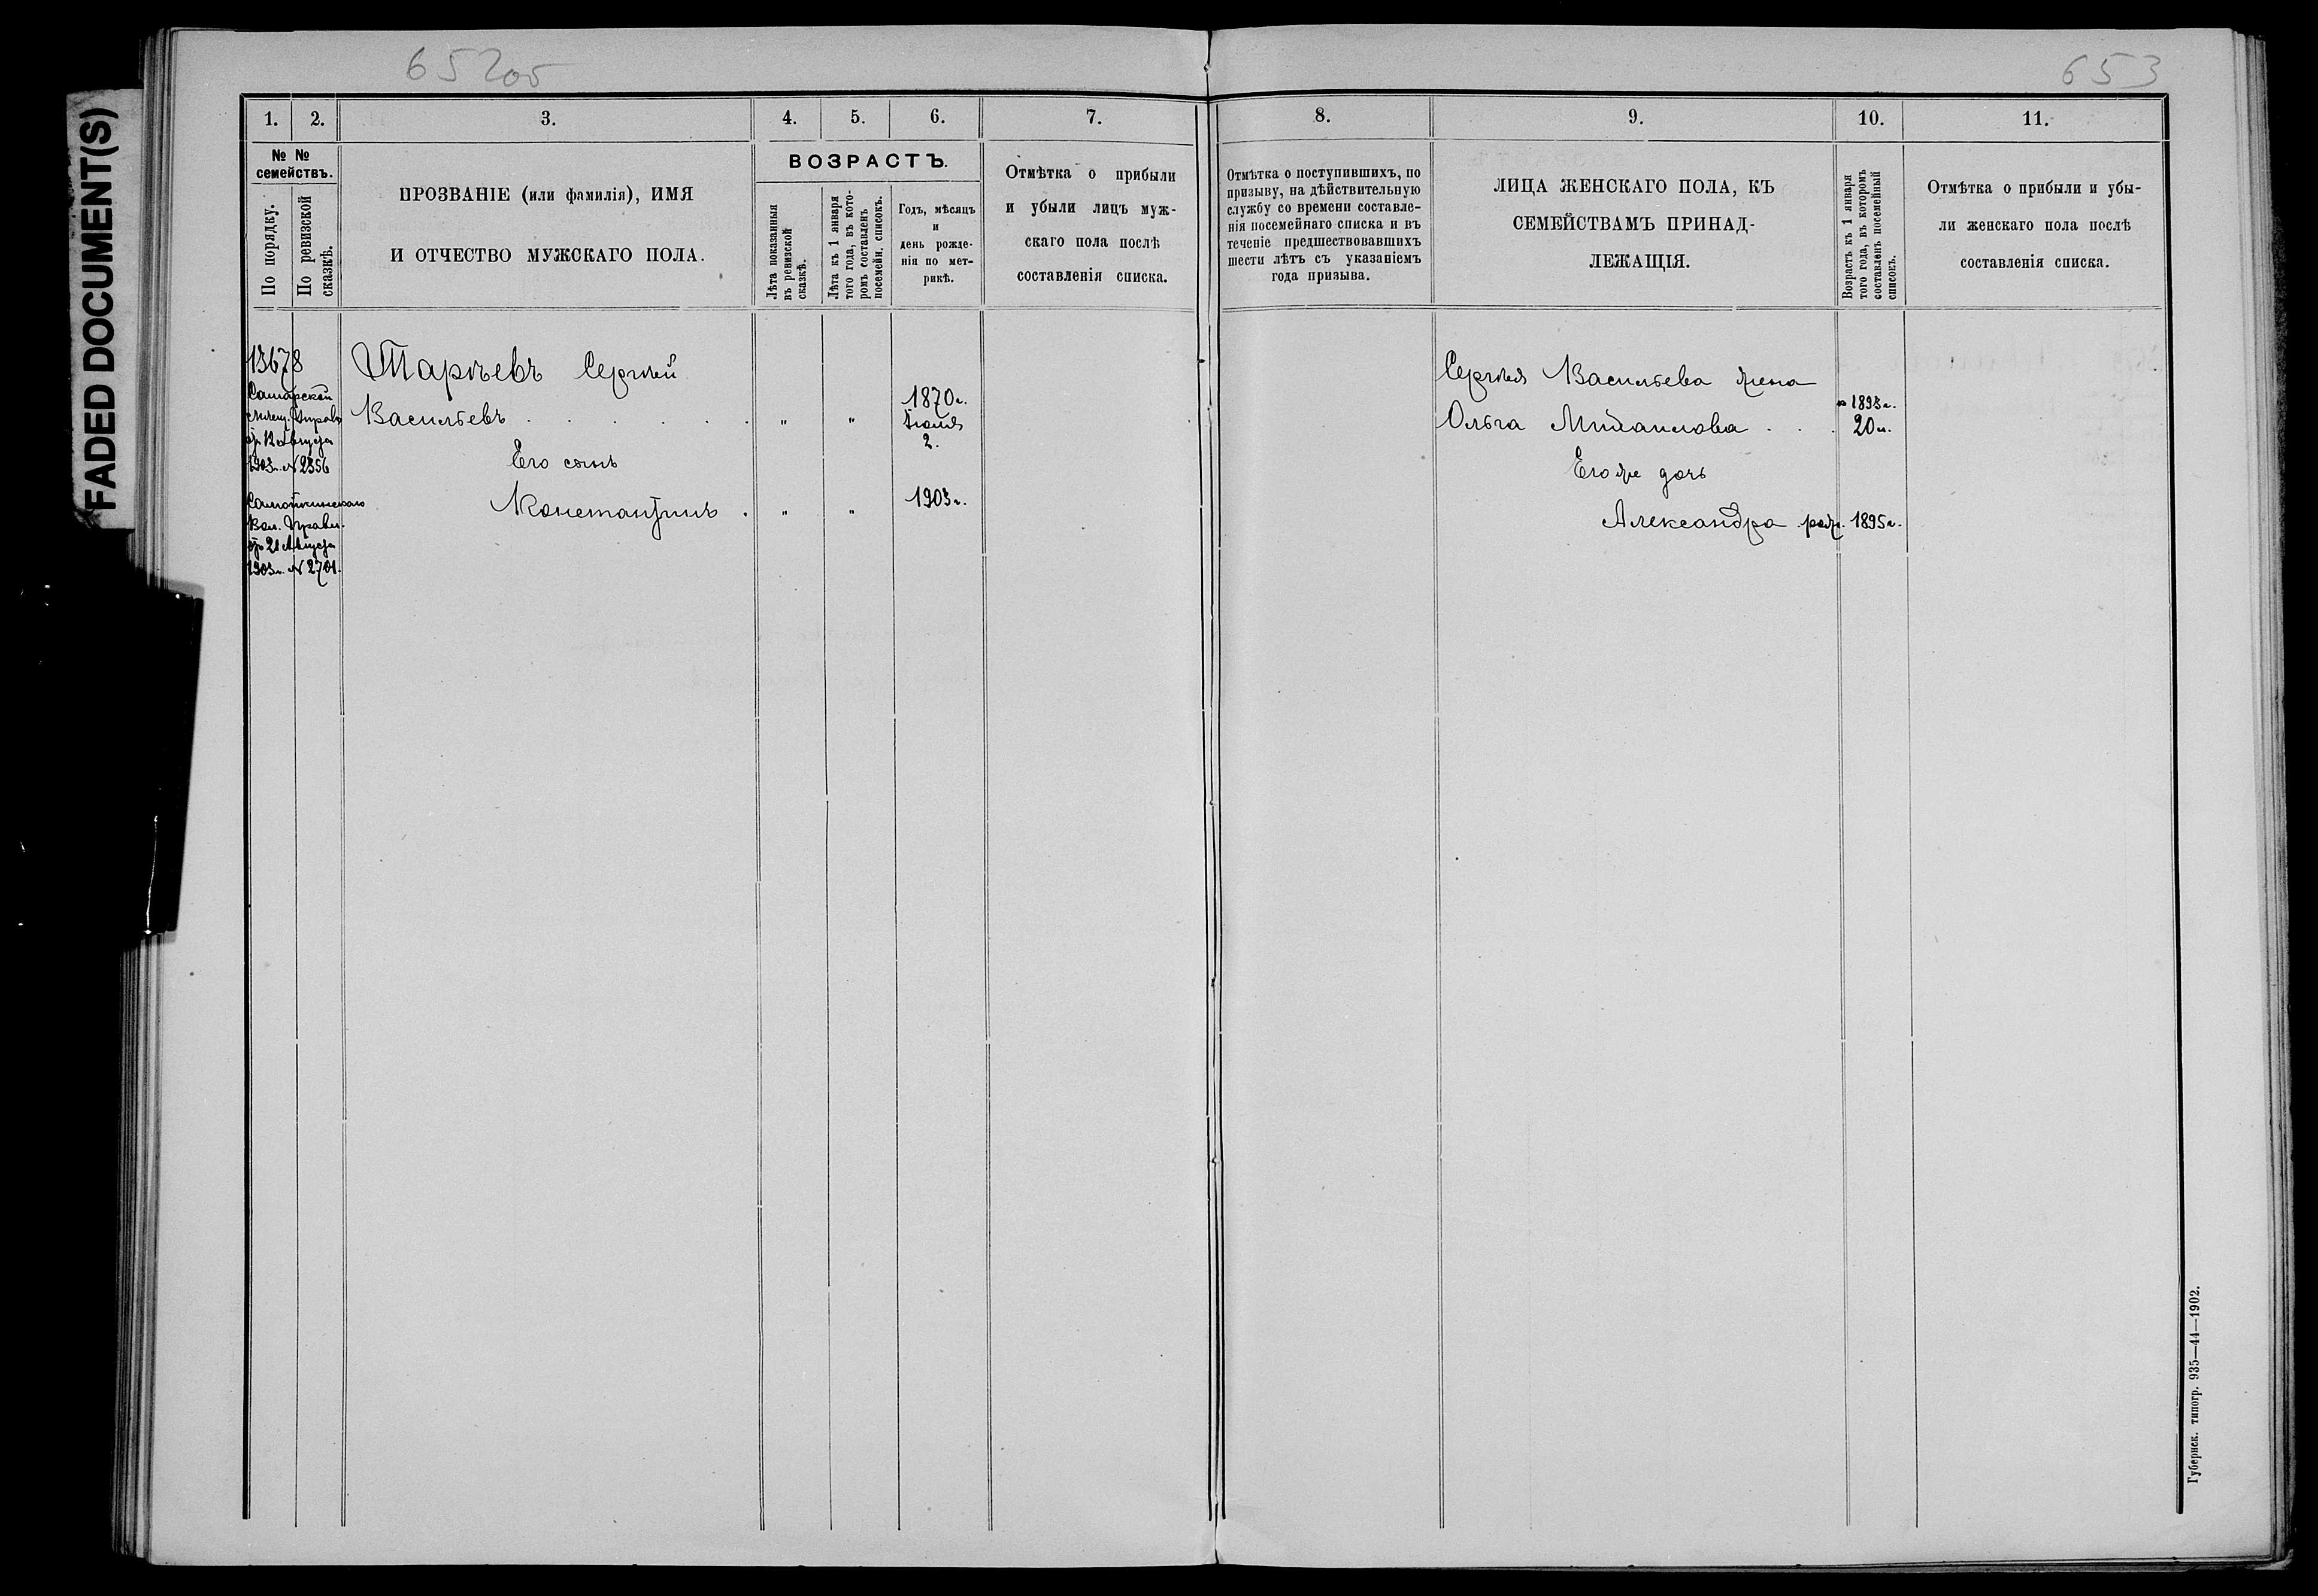 FADED DOCUMENT(S)
652об
653
1. 2. 3. 4. 5. 6. 7. 8. 9. 10. 11.
№ №
семействъ.
По порядку.
По ревизской
сказкѣ.
ПРОЗВАНІЕ (или фамилія), ИМЯ
И ОТЧЕСТВО МУЖСКАГО ПОЛА.
ВОЗРАСТЪ.
Лѣта показанныя
въ ревизской
сказкѣ.
Лѣта къ 1 января
того года, въ кото-
ромъ составленъ
посемейн. списокъ.
Годъ, мѣсяцъ
и
день рожде-
нія по мет-
рикѣ.
Отмѣтка о прибыли
и убыли лицъ муж-
скаго пола послѣ
составленія списка.
Отмѣтка о поступившихъ, по
призыву, на дѣйствительную
службу со времени составле-
нія посемейнаго списка и въ
теченіе предшествовавшихъ
шести лѣтъ съ указаніемъ
года призыва.
ЛИЦА ЖЕНСКАГО ПОЛА, КЪ
СЕМЕЙСТВАМЪ ПРИНАД-
ЛЕЖАЩІЯ.
Возрастъ къ 1 января
того года, въ которомъ
составленъ посемейный
списокъ.
Отмѣтка о прибыли и убы-
ли женскаго пола послѣ
составленія списка.
13678
Самарской
мѣщ. Управы
отъ 12 Августа
1903 г. № 2356
Вол. Правл.
отъ 21 Августа
1903 г. № 2701.
Сергѣй
Васильевъ . . . . . . " "
1870 г.
Іюля
2.
Его сынъ
Константинъ . " " 1903 г.
Сергѣя Васильева жена
Ольга Михаилова . . .
1893 г.
20 л.
Его же дочь
Александра рожд. 1895 г.
Губернск. типогр. 935—44—1902.